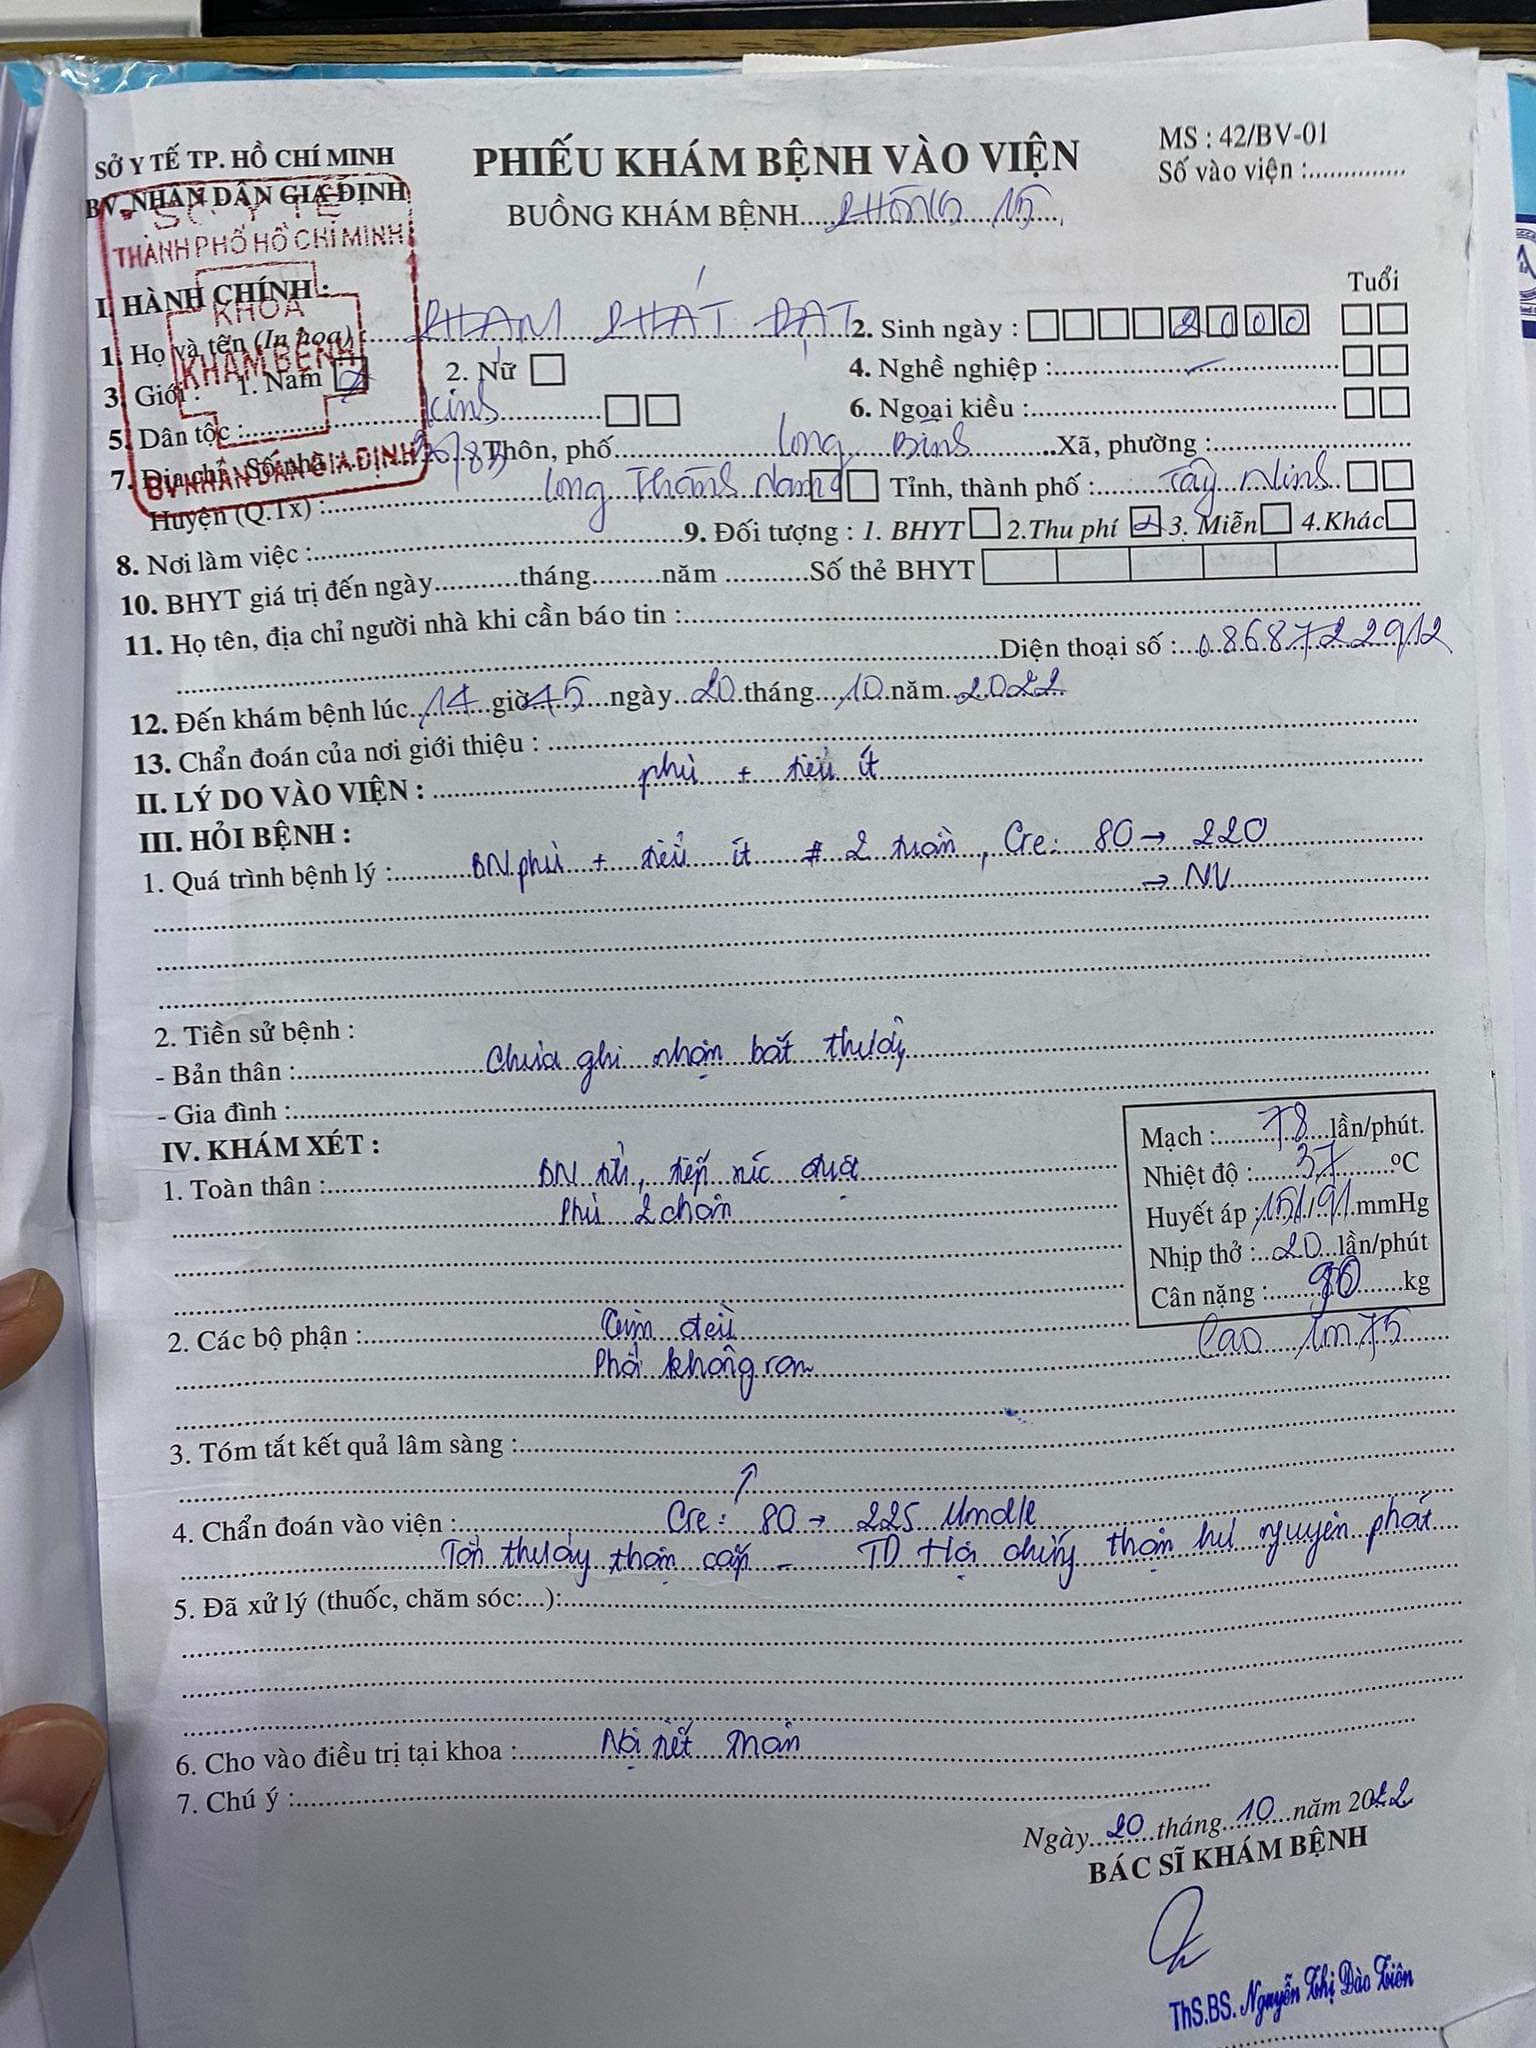 SỞ Y TẾ TP. HỒ CHÍ MINH
BV. NHÂN DÂN GIA ĐỊNH
PHIẾU KHÁM BỆNH VÀO VIỆN
MS : 42/BV-01
Số vào viện :..............
BUỒNG KHÁM BỆNH....PHÒNG 15....
SỞ Y TẾ
THÀNH PHỐ HỒ CHÍ MINH
KHOA
KHÁM BỆNH
BV NHÂN DÂN GIA ĐỊNH
I. HÀNH CHÍNH :
Tuổi
1. Họ và tên (In hoa) : PHẠM PHÁT ĐẠT 2. Sinh ngày : 2000
3. Giới : 1. Nam 2. Nữ 4. Nghề nghiệp :
5. Dân tộc : Kinh 6. Ngoại kiều :
7. Địa chỉ : Số nhà : Thôn, phố Long Bình Xã, phường :
Huyện (Q.Tx) : Long Thành Nam Tỉnh, thành phố : Tây Ninh
8. Nơi làm việc : 9. Đối tượng : 1. BHYT 2.Thu phí 3. Miễn 4.Khác
10. BHYT giá trị đến ngày..........tháng.........năm ...........Số thẻ BHYT
11. Họ tên, địa chỉ người nhà khi cần báo tin :
Điện thoại số : 0868722912
12. Đến khám bệnh lúc 14 giờ 45 ngày 20 tháng 10 năm 2022
13. Chẩn đoán của nơi giới thiệu :
II. LÝ DO VÀO VIỆN : phù + tiểu ít
III. HỎI BỆNH :
1. Quá trình bệnh lý : BN phù + tiểu ít # 2 tuần, Cre: 80 → 220
→ NV
2. Tiền sử bệnh :
- Bản thân : Chưa ghi nhận bất thường
- Gia đình :
IV. KHÁM XÉT :
1. Toàn thân : BN tỉnh, tiếp xúc được
Phù 2 chân
Mạch : 78 lần/phút.
Nhiệt độ : 37 ºC
Huyết áp : 151/91 mmHg
Nhịp thở : 20 lần/phút
Cân nặng : 90 kg
Cao 1m75
2. Các bộ phận : Tim đều
Phổi không ran
3. Tóm tắt kết quả lâm sàng :
4. Chẩn đoán vào viện : Cre: 80 → 225 Umol/l
Tổn thương thận cấp - TD Hội chứng thận hư nguyên phát
5. Đã xử lý (thuốc, chăm sóc:...):
6. Cho vào điều trị tại khoa : Nội tiết thận
7. Chú ý :
Ngày 20 tháng 10 năm 2022
BÁC SĨ KHÁM BỆNH
ThS.BS. Nguyễn Thị Đào Tiên